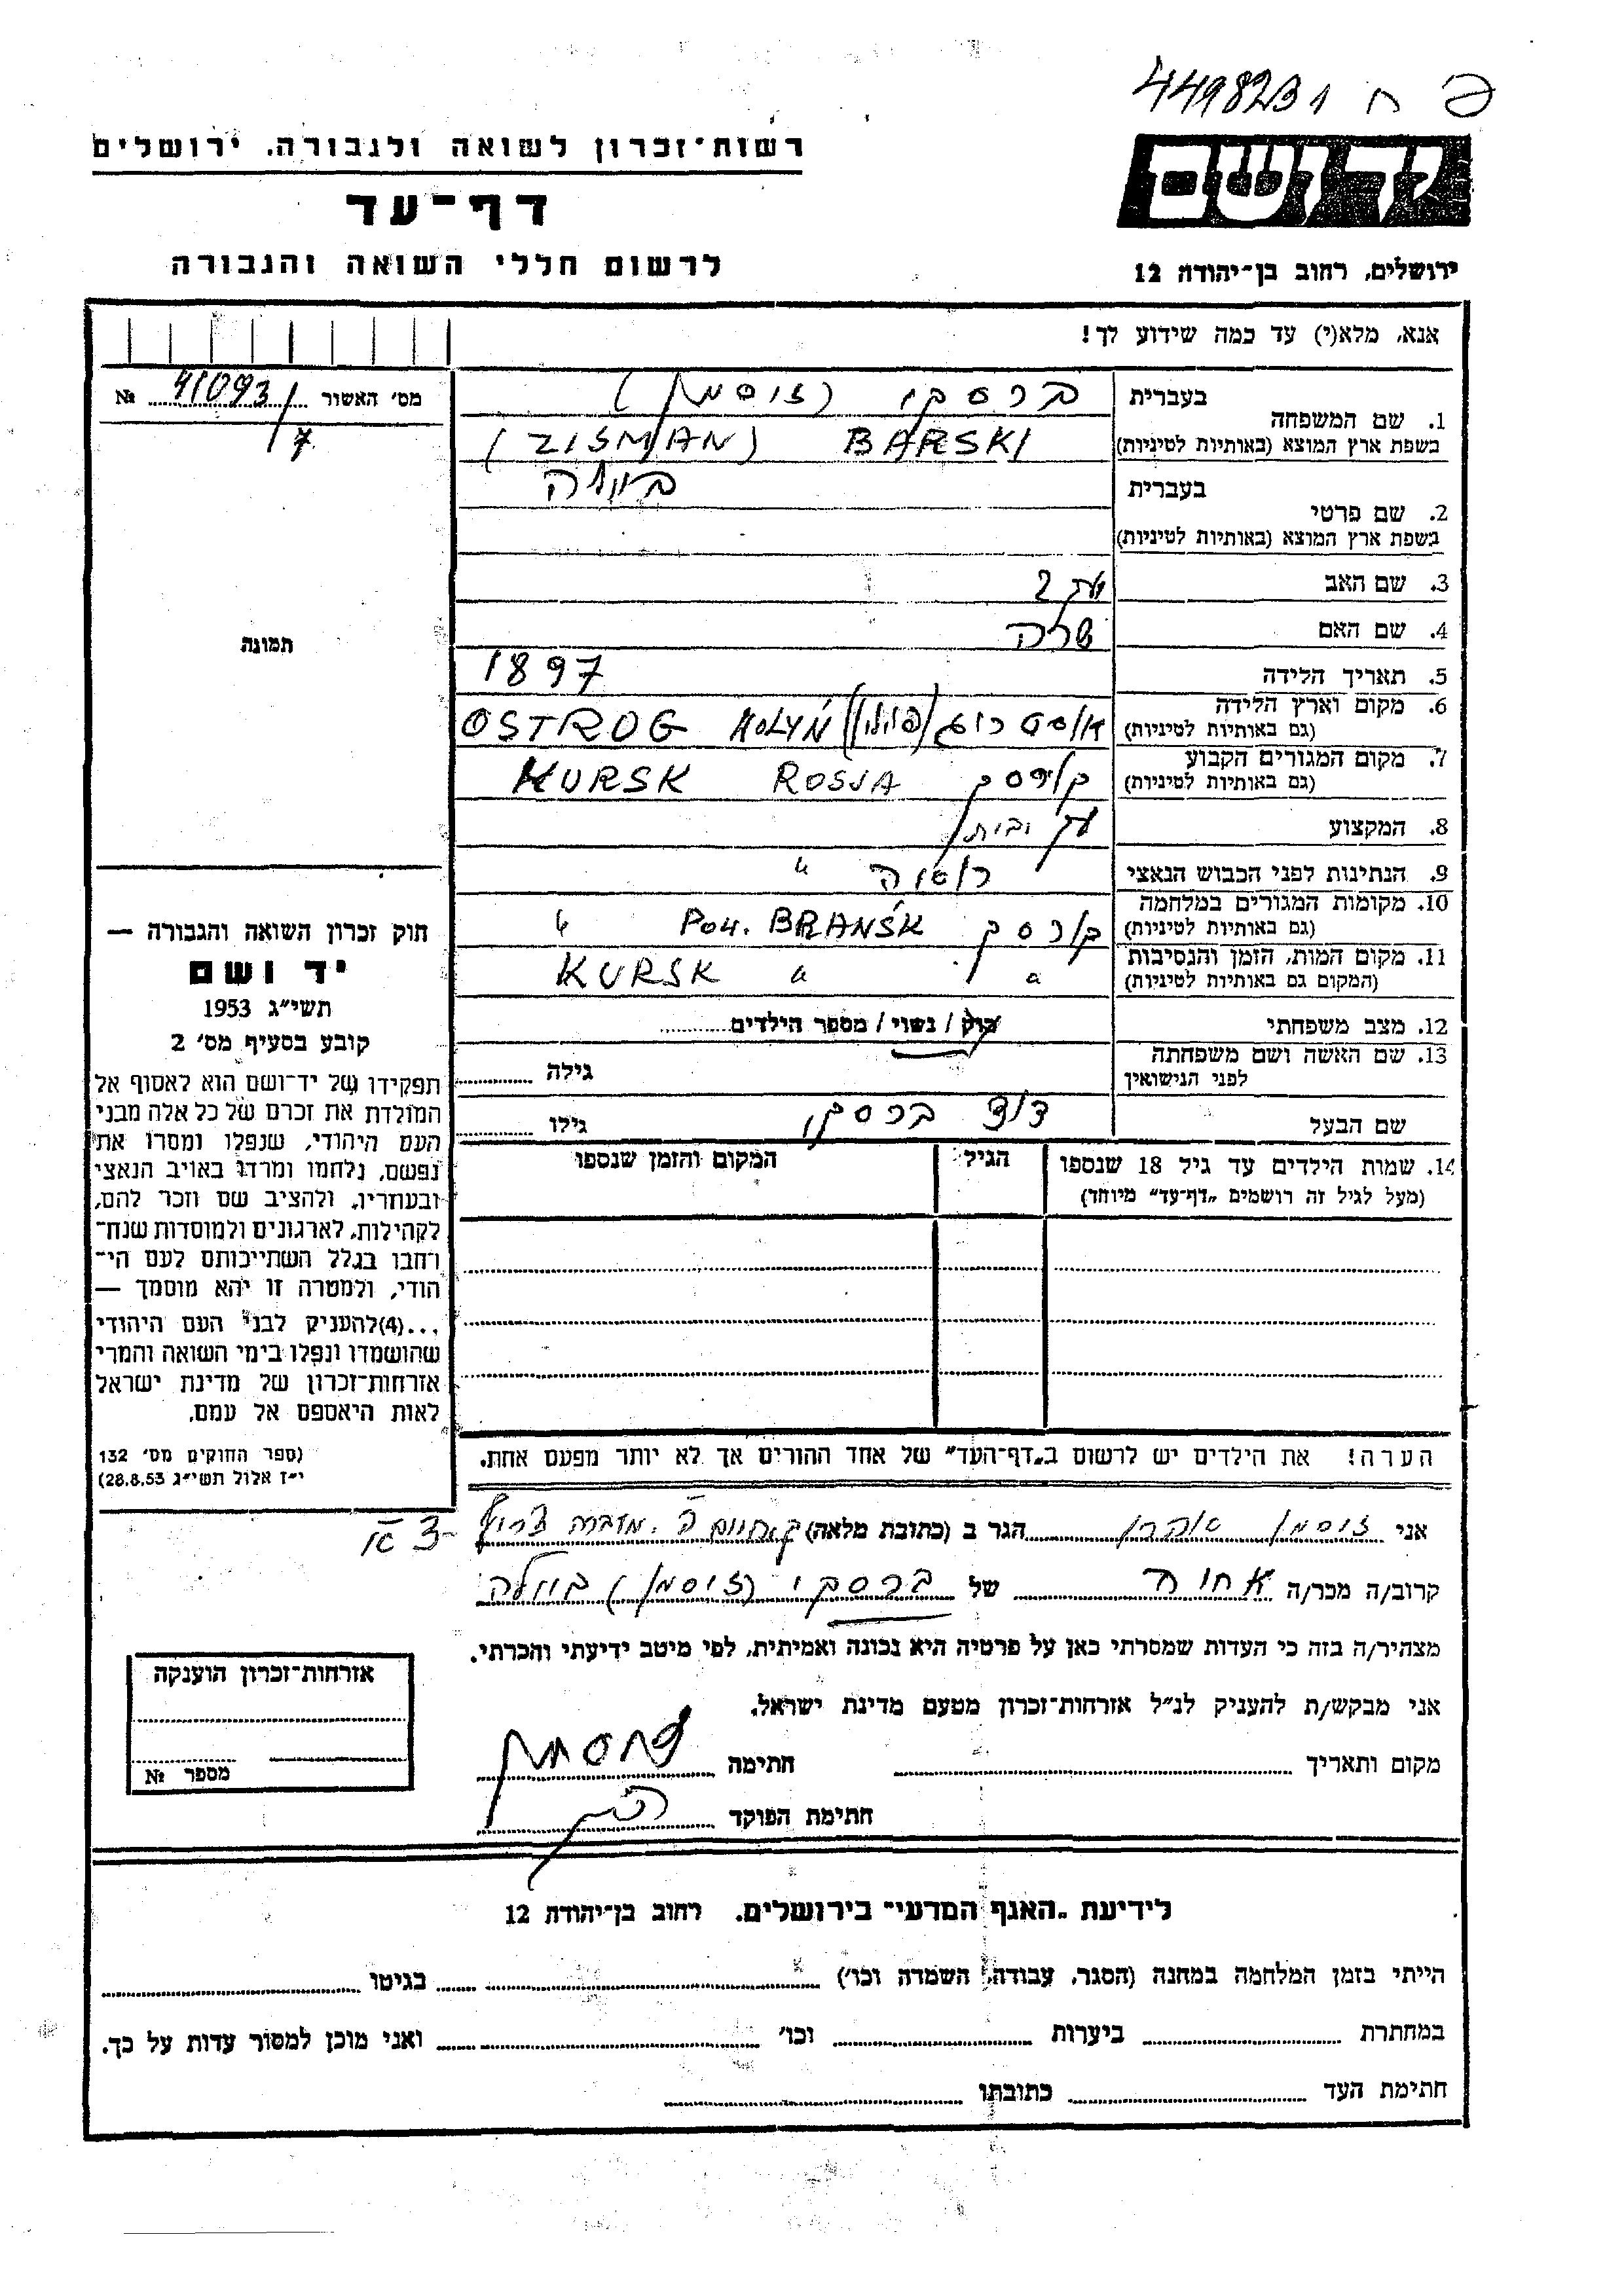 פ ח 4498231
יד ושם
ירושלים, רחוב בן־יהודה 12
רשות־זכרון לשואה ולגבורה, ירושלים
דף־עד
לרשום חללי השואה והגבורה
אנא, מלא(י) עד כמה שידוע לך!
מס׳ האשור 41093 №
7
תמונה
1. שם המשפחה
בעברית ברסקי (זוסמן)
בשפת ארץ המוצא (באותיות לטיניות) BARSKI (ZISMAN)
2. שם פרטי
בעברית
בשפת ארץ המוצא (באותיות לטיניות)
3. שם האב
4. שם האם שרה
5. תאריך הלידה 1897
6. מקום וארץ הלידה
(גם באותיות לטיניות) אוסטרוג (ווהלין) WOŁYŃ OSTROG
7. מקום המגורים הקבוע
(גם באותיות לטיניות) קורסק ROSJA KURSK
8. המקצוע עק׳ הבית
9. הנתינות לפני הכבוש הנאצי רוסיה "
10. מקומות המגורים במלחמה
(גם באותיות לטיניות) קורסק POW. BRAŃSK "
11. מקום המות, הזמן והנסיבות
(המקום גם באותיות לטיניות) " " KURSK
12. מצב משפחתי רוק / נשוי / מספר הילדים
13. שם האשה ושם משפחתה
לפני הנישואין גילה
שם הבעל דוד ברסקי גילו
14. שמות הילדים עד גיל 18 שנספו הגיל המקום והזמן שנספו
(מעל לגיל זה רושמים „דף־עד״ מיוחד)
הערה! את הילדים יש לרשום ב„דף־העד״ של אחד ההורים אך לא יותר מפעם אחת.
חוק זכרון השואה והגבורה —
יד ושם
תשי״ג 1953
קובע בסעיף מס׳ 2
תפקידו של יד־ושם הוא לאסוף אל
המולדת את זכרם של כל אלה מבני
העם היהודי, שנפלו ומסרו את
נפשם, נלחמו ומרדו באויב הנאצי
ובעוזריו, ולהציב שם וזכר להם,
לקהילות, לארגונים ולמוסדות שנח־
רחבו בגלל השתייכותם לעם הי־
הודי, ולמטרה זו יהא מוסמך —
...(4)להעניק לבני העם היהודי
שהושמדו ונפלו בימי השואה והמרי
אזרחות־זכרון של מדינת ישראל
לאות היאספם אל עמם.
(ספר החוקים מס׳ 132
י״ז אלול תשי״ג 28.8.53)
אני זוסמן אהרן הגר ב (כתובת מלאה)
קרוב/ה מכר/ה אחות של ברסקי (זוסמן)
מצהיר/ה בזה כי העדות שמסרתי כאן על פרטיה היא נכונה ואמיתית, לפי מיטב ידיעתי והכרתי.
אני מבקש/ת להעניק לנ״ל אזרחות־זכרון מטעם מדינת ישראל.
מקום ותאריך חתימה זוסמן
חתימת הפוקד
אזרחות־זכרון הוענקה
מספר №
לידיעת „האגף המדעי״ בירושלים, רחוב בן־יהודה 12
הייתי בזמן המלחמה במחנה (הסגר, עבודה, השמדה וכו׳) בגיטו
במחתרת ביערות וכו׳ ואני מוכן למסור עדות על כך.
חתימת העד כתובתו